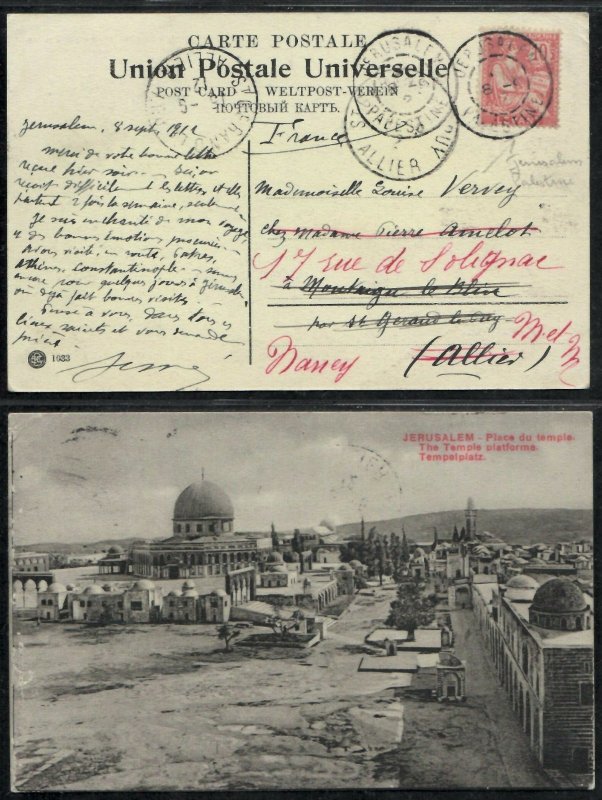 CARTE POSTALE
Union Postale Universelle
POST CARD - WELTPOST-VEREIN
ПОЧТОВЫЙ КАРТЪ.
JERUSALEM
PALESTINE
JERUSALEM
PALESTINE
ALLIER
ALLIER
10
Jerusalem, 8 sept 1912
merci de votre bonne lettre
reçue hier soir
reçoit difficilement les lettres et elle
partent 2 fois la semaine, seulement
Je suis enchanté de mon voyage
et des bonnes émotions
Avons visité en route, Patras,
Athènes, Constantinople - sommes
encore pour quelques jours à Jerusalem
ou déjà fait bonnes visites.
Pense à vous, dans tous ces
lieux saints et vous demande
prière.
1033
France
Jerusalem
Palestine
Mademoiselle Louise Vervey
chez Madame Pierre Amelot
17 rue de Solignac
à Montaigu le Blin
par St Gerand le Puy
M et M
Nancy
(Allier)
JERUSALEM - Place du temple.
The Temple platforme.
Tempelplatz.